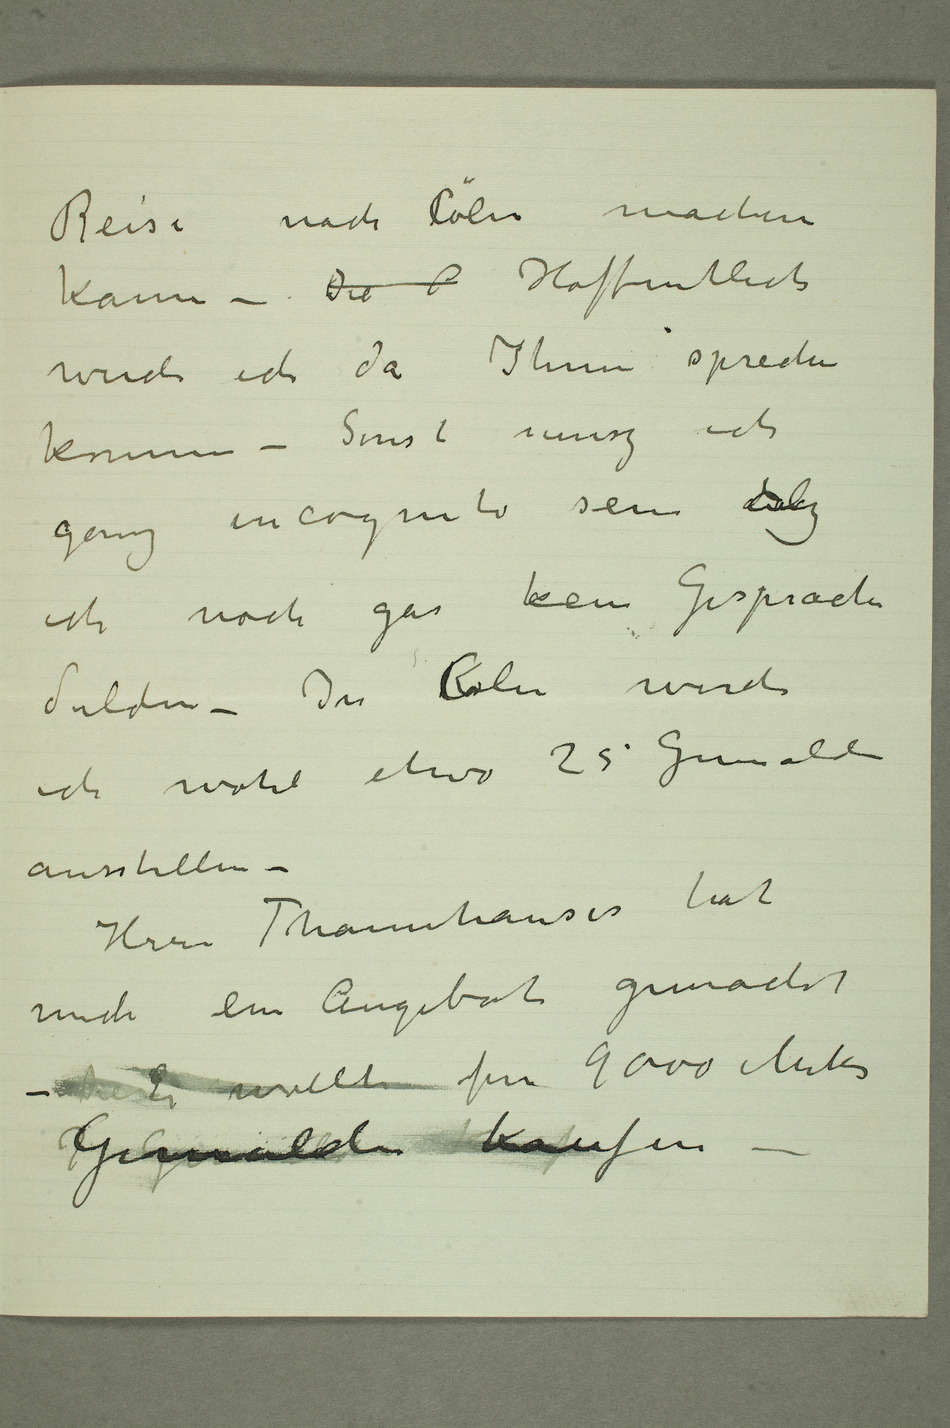 Reise nach Cöln machen
kann – Die P Hoffentlich
werde ich da Ihnen sprechen
können – Sonst musz ich
ganz incognito sein da
ich noch gar kein Gespräche
dulden – In Cöln werde
ich wohl etwa 25 Gemälde
ausstellen –
Herr Thannhauser hat
mich ein Angebot gemacht
– Er wollte für 9000 Mks
Gemälde kaufen –